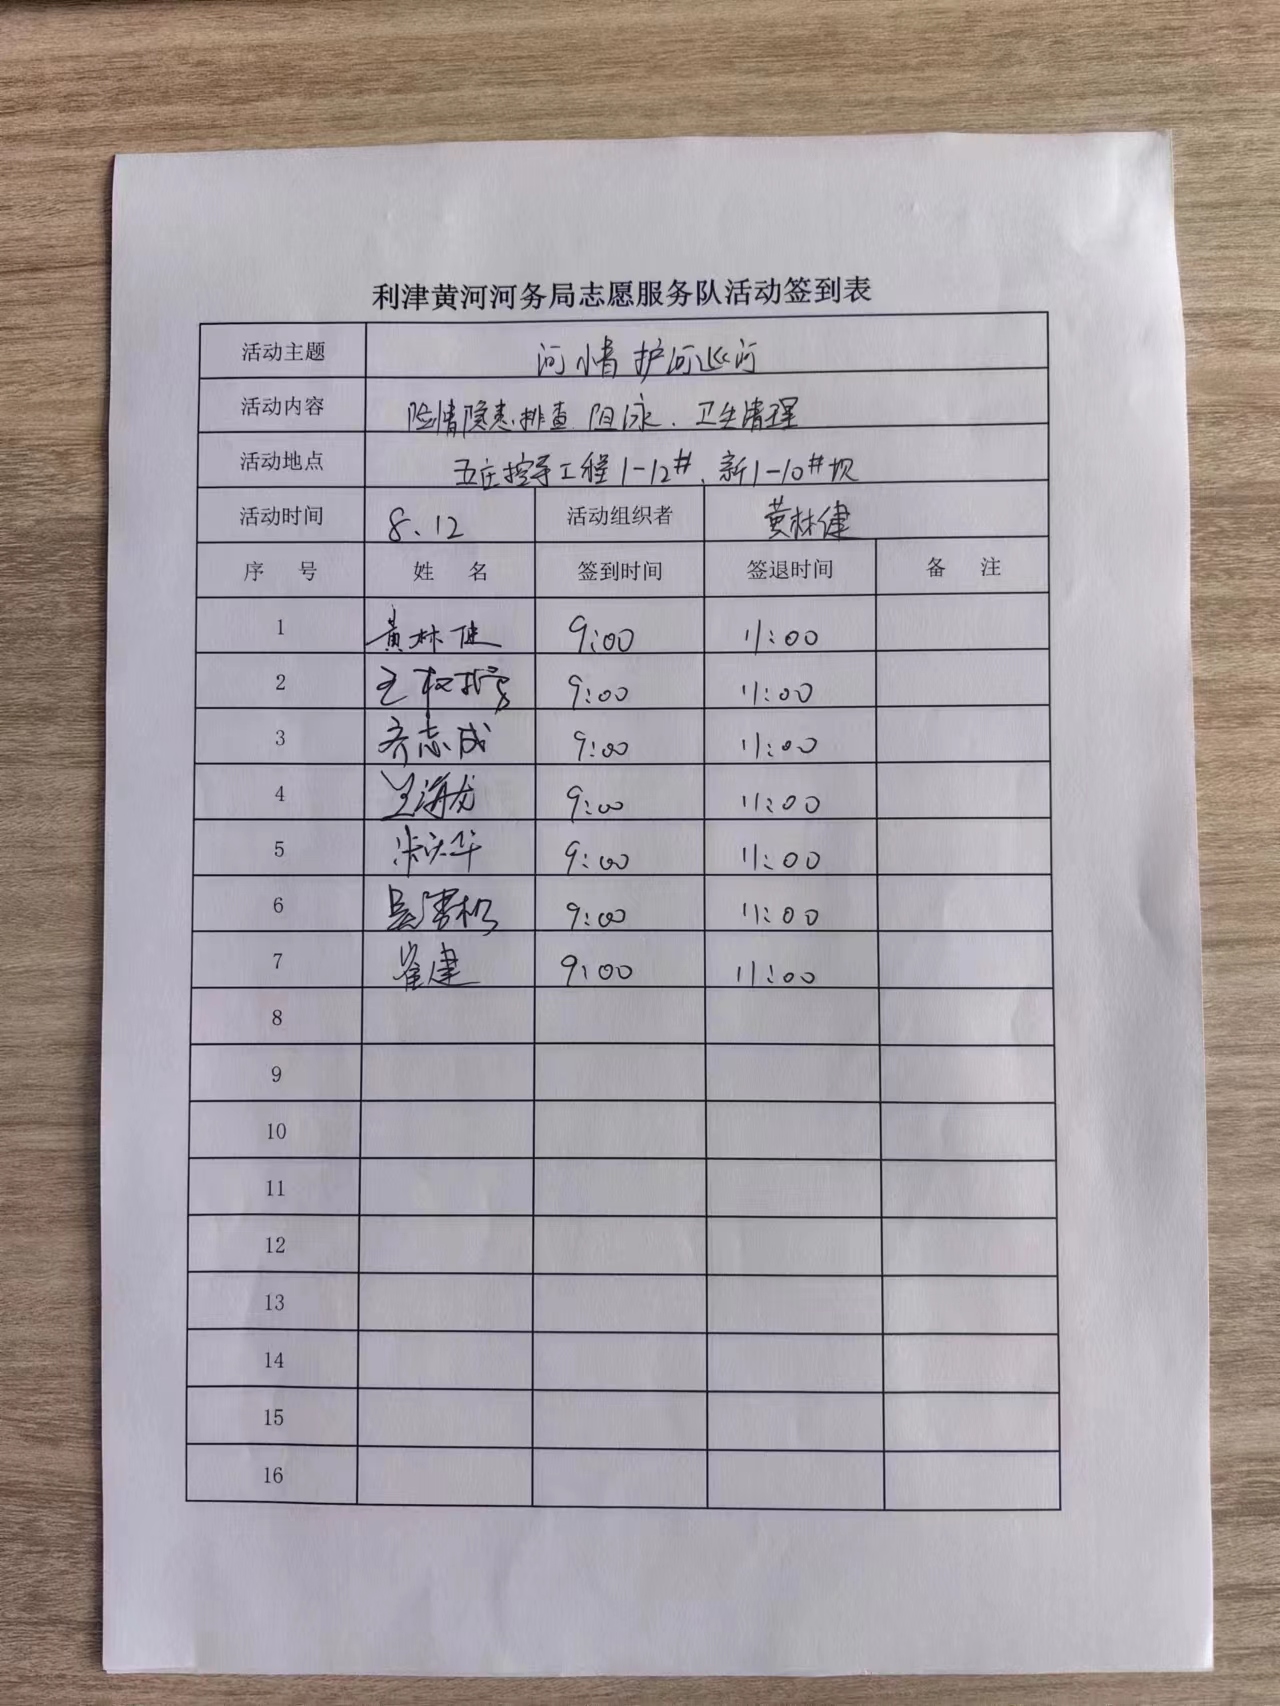 利津黄河河务局志愿服务队活动签到表
活动主题 河情 护河巡河
活动内容 险情隐患排查 阻泳、卫生清理
活动地点 五庄控导工程1-12#、新1-10#坝
活动时间 8.12 活动组织者 黄林健
序 号 姓 名 签到时间 签退时间 备 注
1 黄林健 9:00 11:00
2 王 9:00 11:00
3 齐志成 9:00 11:00
4 王海龙 9:00 11:00
5 华 9:00 11:00
6 吴雪松 9:00 11:00
7 崔建 9:00 11:00
8
9
10
11
12
13
14
15
16